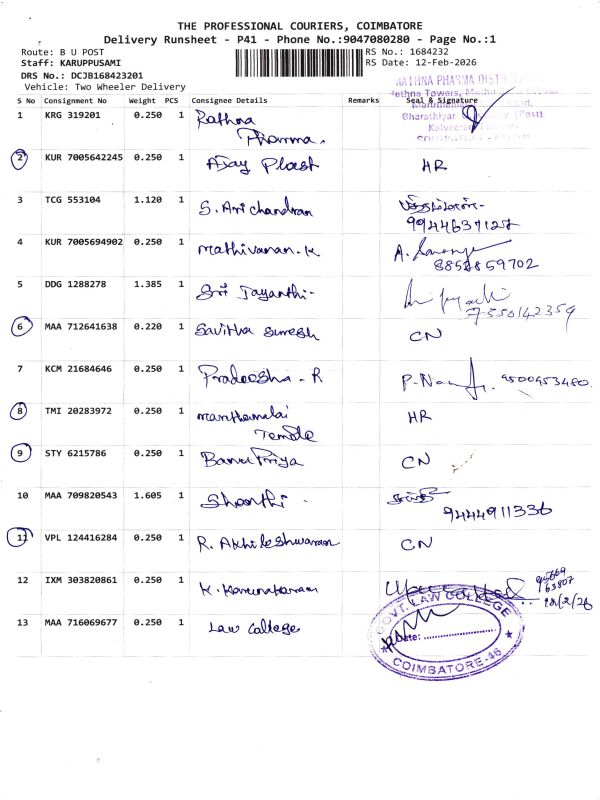 THE PROFESSIONAL COURIERS, COIMBATORE
Delivery Runsheet - P41 - Phone No.:9047080280 - Page No.:1
Route: B U POST
RS No.: 1684232
Staff: KARUPPUSAMI
RS Date: 12-Feb-2026
DRS No.: DCJB168423201
Vehicle: Two Wheeler Delivery
S No Consignment No Weight PCS Consignee Details Remarks Seal & Signature
RATHNA PHARMA DISTR
Rethna Towers,
Bharathiyar (Post)
1 KRG 319201 0.250 1 Rathna
Pharma.
2 KUR 7005642245 0.250 1 AJay Plast HR
3 TCG 553104 1.120 1 S. Arichandran
9944637127
4 KUR 7005694902 0.250 1 Mathivanan. K A.
8852859702
5 DDG 1288278 1.385 1 Sri Jayanthi-
7550142359
6 MAA 712641638 0.220 1 Savitha Suresh CN
7 KCM 21684646 0.250 1 Pradeesha - R 9500953480.
8 TMI 20283972 0.250 1 Maruthamalai HR
Temple
9 STY 6215786 0.250 1 Banu Priya CN
10 MAA 709820543 1.605 1 Shanthi
9444911336
11 VPL 124416284 0.250 1 R. Akhileshwaran CN
12 IXM 303820861 0.250 1 K. Karunakaran
63807
12/2/26
13 MAA 716069677 0.250 1 Law College
GOVT. LAW COLLEGE
Date:
COIMBATORE-46